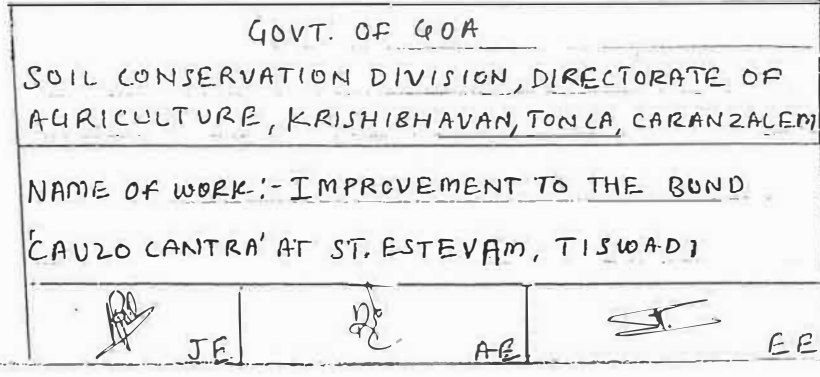 GOVT. OF GOA
SOIL CONSERVATION DIVISION, DIRECTORATE OF
AGRICULTURE, KRISHIBHAVAN, TONCA, CARANZALEM
NAME OF WORK:- IMPROVEMENT TO THE BUND
'CAUZO CANTRA' AT ST. ESTEVAM, TISWADI
JE AE EE